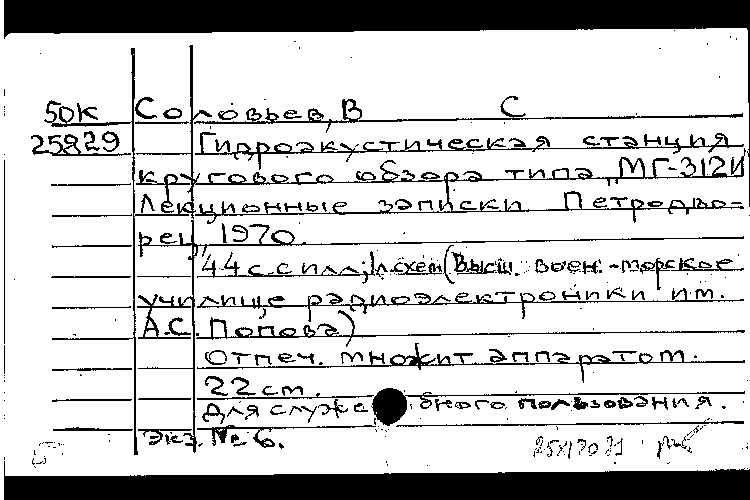 50К Соловьев, В С
25829 Гидроакустическая станция
кругового обзора типа „МГ-312И
Лекционные записки Петродво-
рец, 1970.
44 с с илл; 1 схем (Высш. воен.-морское
училище радиоэлектроники им.
А.С. Попова)
Отпеч. множит аппаратом.
22 см.
Для служебного пользования.
Экз. № 6.